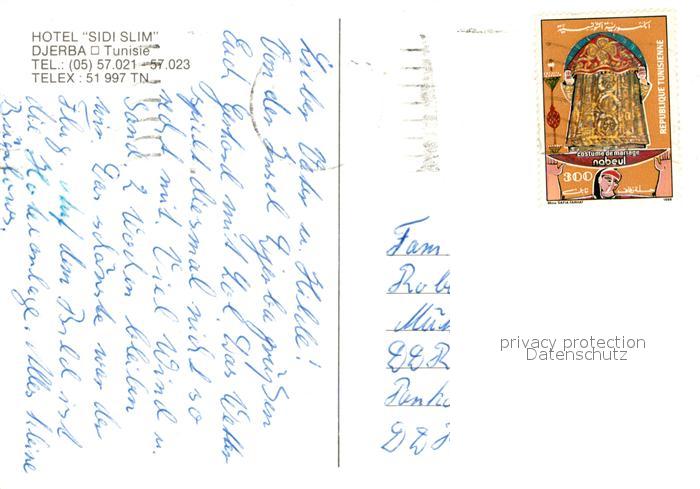 HOTEL "SIDI SLIM"
DJERBA □ Tunisie
TEL.: (05) 57.021 - 57.023
TELEX : 51 997 TN
Lieber Vater u. Hilde!
Von der Insel Djerba grüßen
Euch Gerhard mit Lol. Das Wetter
spielt diesmal nicht so
recht mit. Viel Wind u.
Sand. 2 Wochen bleiben
wir. Das schönste war der
Flug. Auf dem Bild ist
die Hotelanlage. Alles kleine
Bungalows.
REPUBLIQUE TUNISIENNE
costume de mariage
nabeul
300
1988
Fam
Rob
Mün
DDR
Pank
DDR
privacy protection
Datenschutz